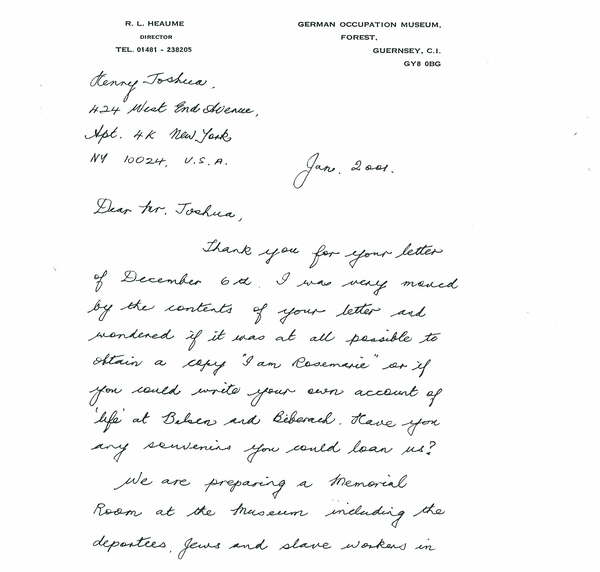 R. L. HEAUME
DIRECTOR
TEL. 01481 - 238205
GERMAN OCCUPATION MUSEUM,
FOREST,
GUERNSEY, C.I.
GY8 0BG
Henry Joshua,
424 West End Avenue,
Apt. 4K New York
NY 10024, U.S.A.
Jan. 2001.
Dear Mr. Joshua,
Thank you for your letter
of December 6th. I was very moved
by the contents of your letter and
wondered if it was at all possible to
obtain a copy "I am Rosemarie" or if
you could write your own account of
'life' at Belsen and Biberach. Have you
any souvenirs you could loan us?
We are preparing a Memorial
Room at the Museum including the
deportees, Jews and slave workers in